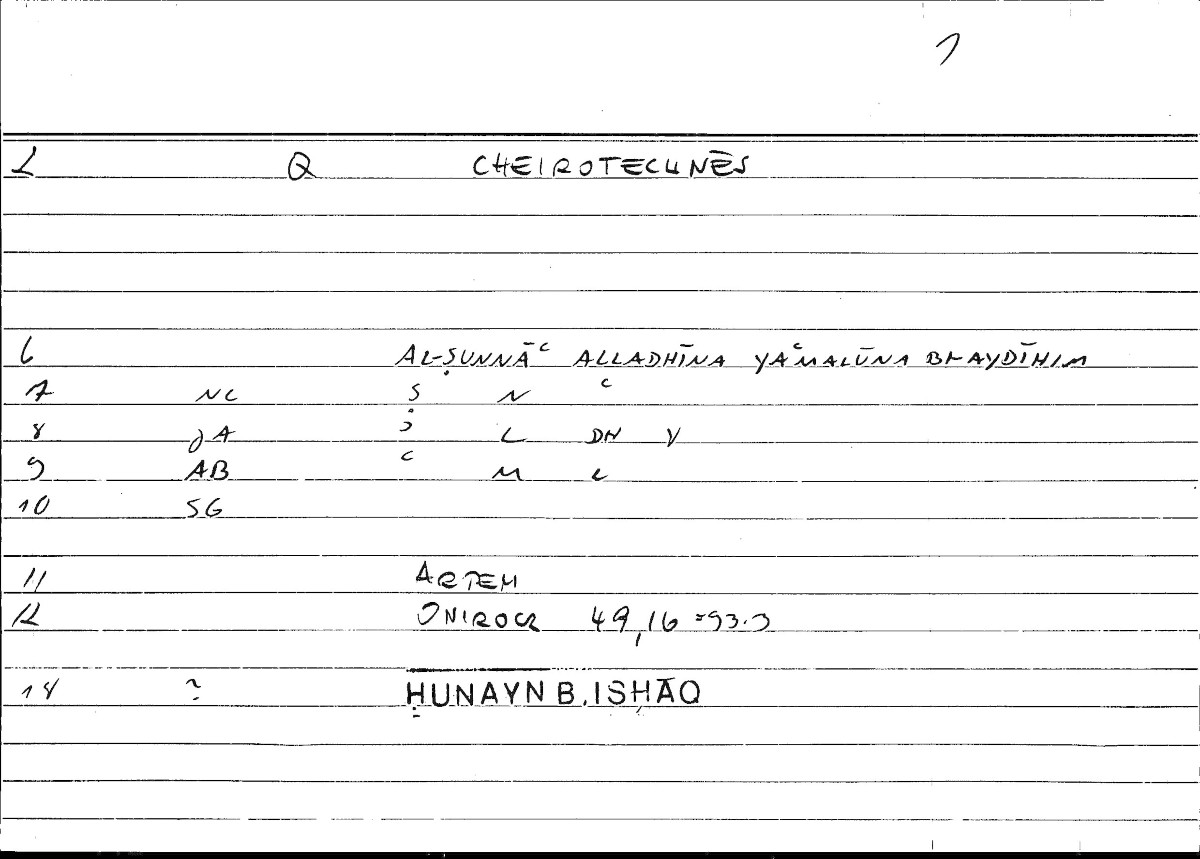 1
2 Q CHEIROTECHNĒS
6 AL-ṢUNNĀʿ ALLADHĪNA YAʿMALŪNA BI-AYDĪHIM
7 NC Ṣ N ʿ
8 JA ʾ L DH Y
9 AB ʿ M L
10 SG
11 ARTEM
12 ONIROCR 49,16 = 93.3
14 ~ ḤUNAYN B. ISḤĀQ